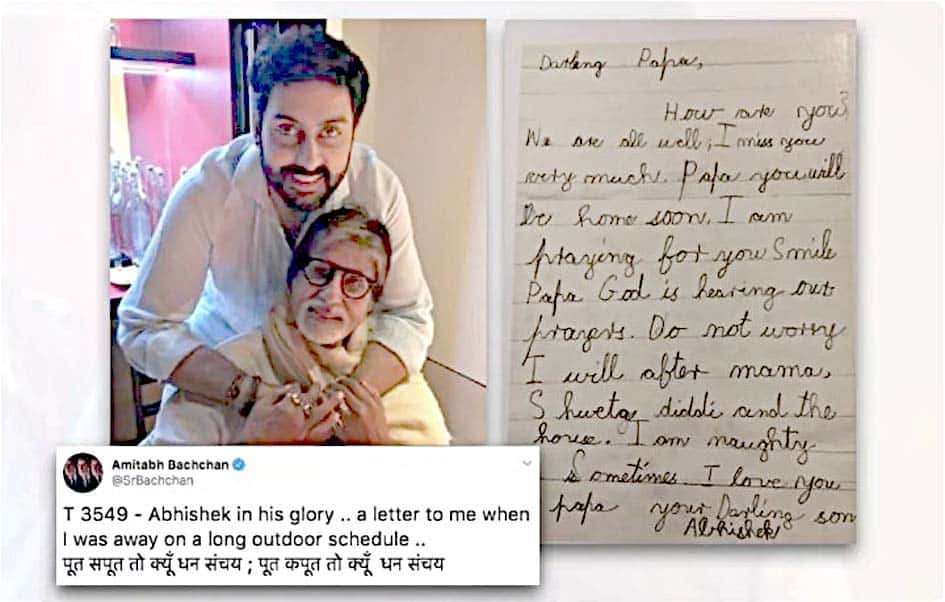 Darling Papa,
How are you?
We are all well; I miss you
very much. Papa you will
be home soon. I am
praying for you Smile
Papa God is hearing our
prayers. Do not worry
I will after mama,
Shweta diddi and the
house. I am naughty
Sometimes I love you
papa your Darling son
Abhishek
Amitabh Bachchan
@SrBachchan
T 3549 - Abhishek in his glory .. a letter to me when
I was away on a long outdoor schedule ..
पूत सपूत तो क्यूँ धन संचय ; पूत कपूत तो क्यूँ धन संचय